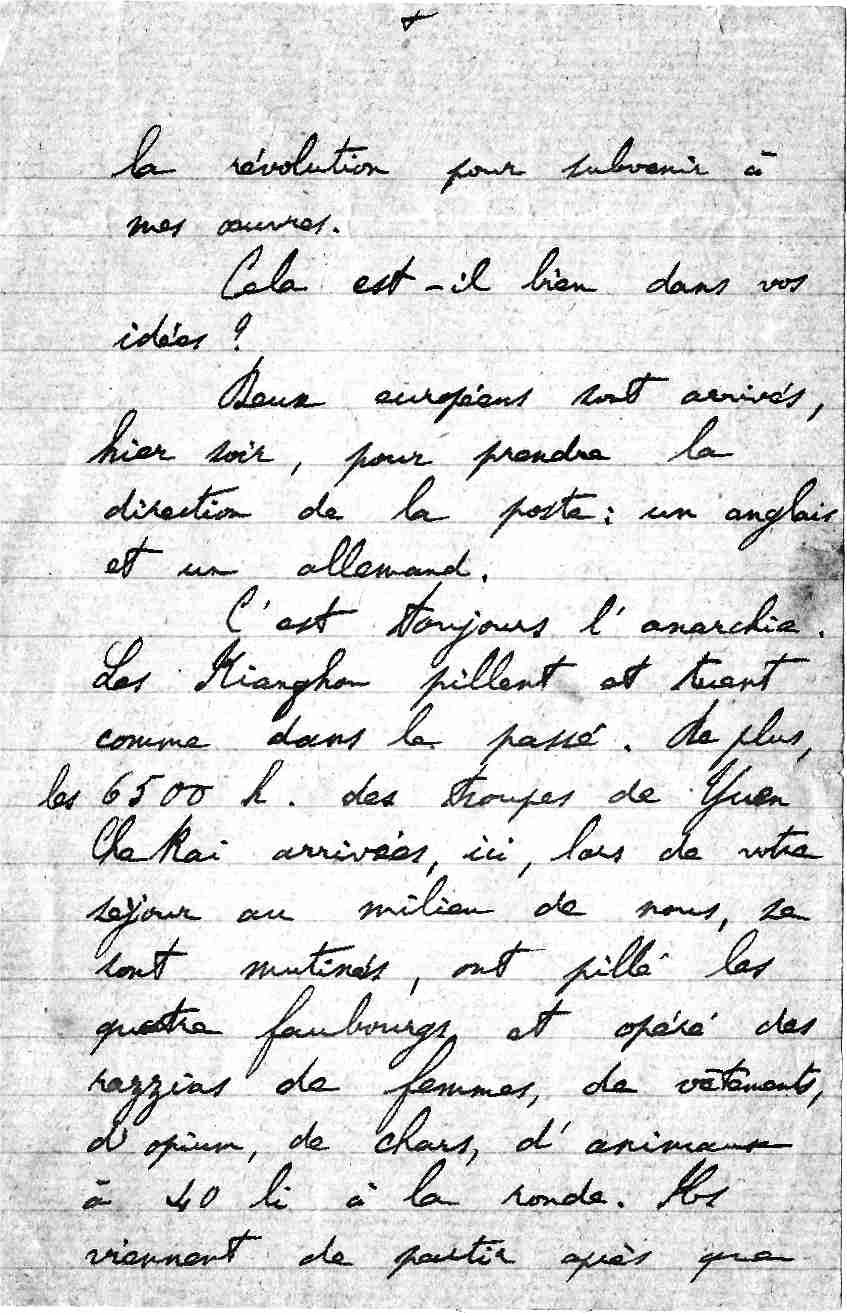 la révolution pour subvenir à
mes œuvres.
Cela est-il bien dans vos
idées ?
Deux européens sont arrivés,
hier soir, pour prendre la
direction de la poste : un anglais
et un allemand.
C'est toujours l'anarchie.
Les Kianghou pillent et tuent
comme dans le passé. De plus,
les 6500 h. des troupes de Yuen
Che Kai arrivées, ici, lors de votre
séjour au milieu de nous, se
sont mutinés, ont pillé les
quatre faubourgs et opéré des
razzias de femmes, de vêtements,
d'opium, de chars, d'animaux
à 40 li à la ronde. Ils
viennent de partir après que